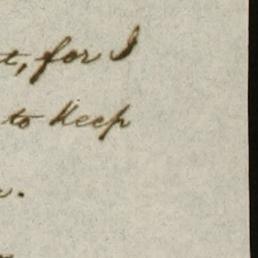 t, for I
to keep